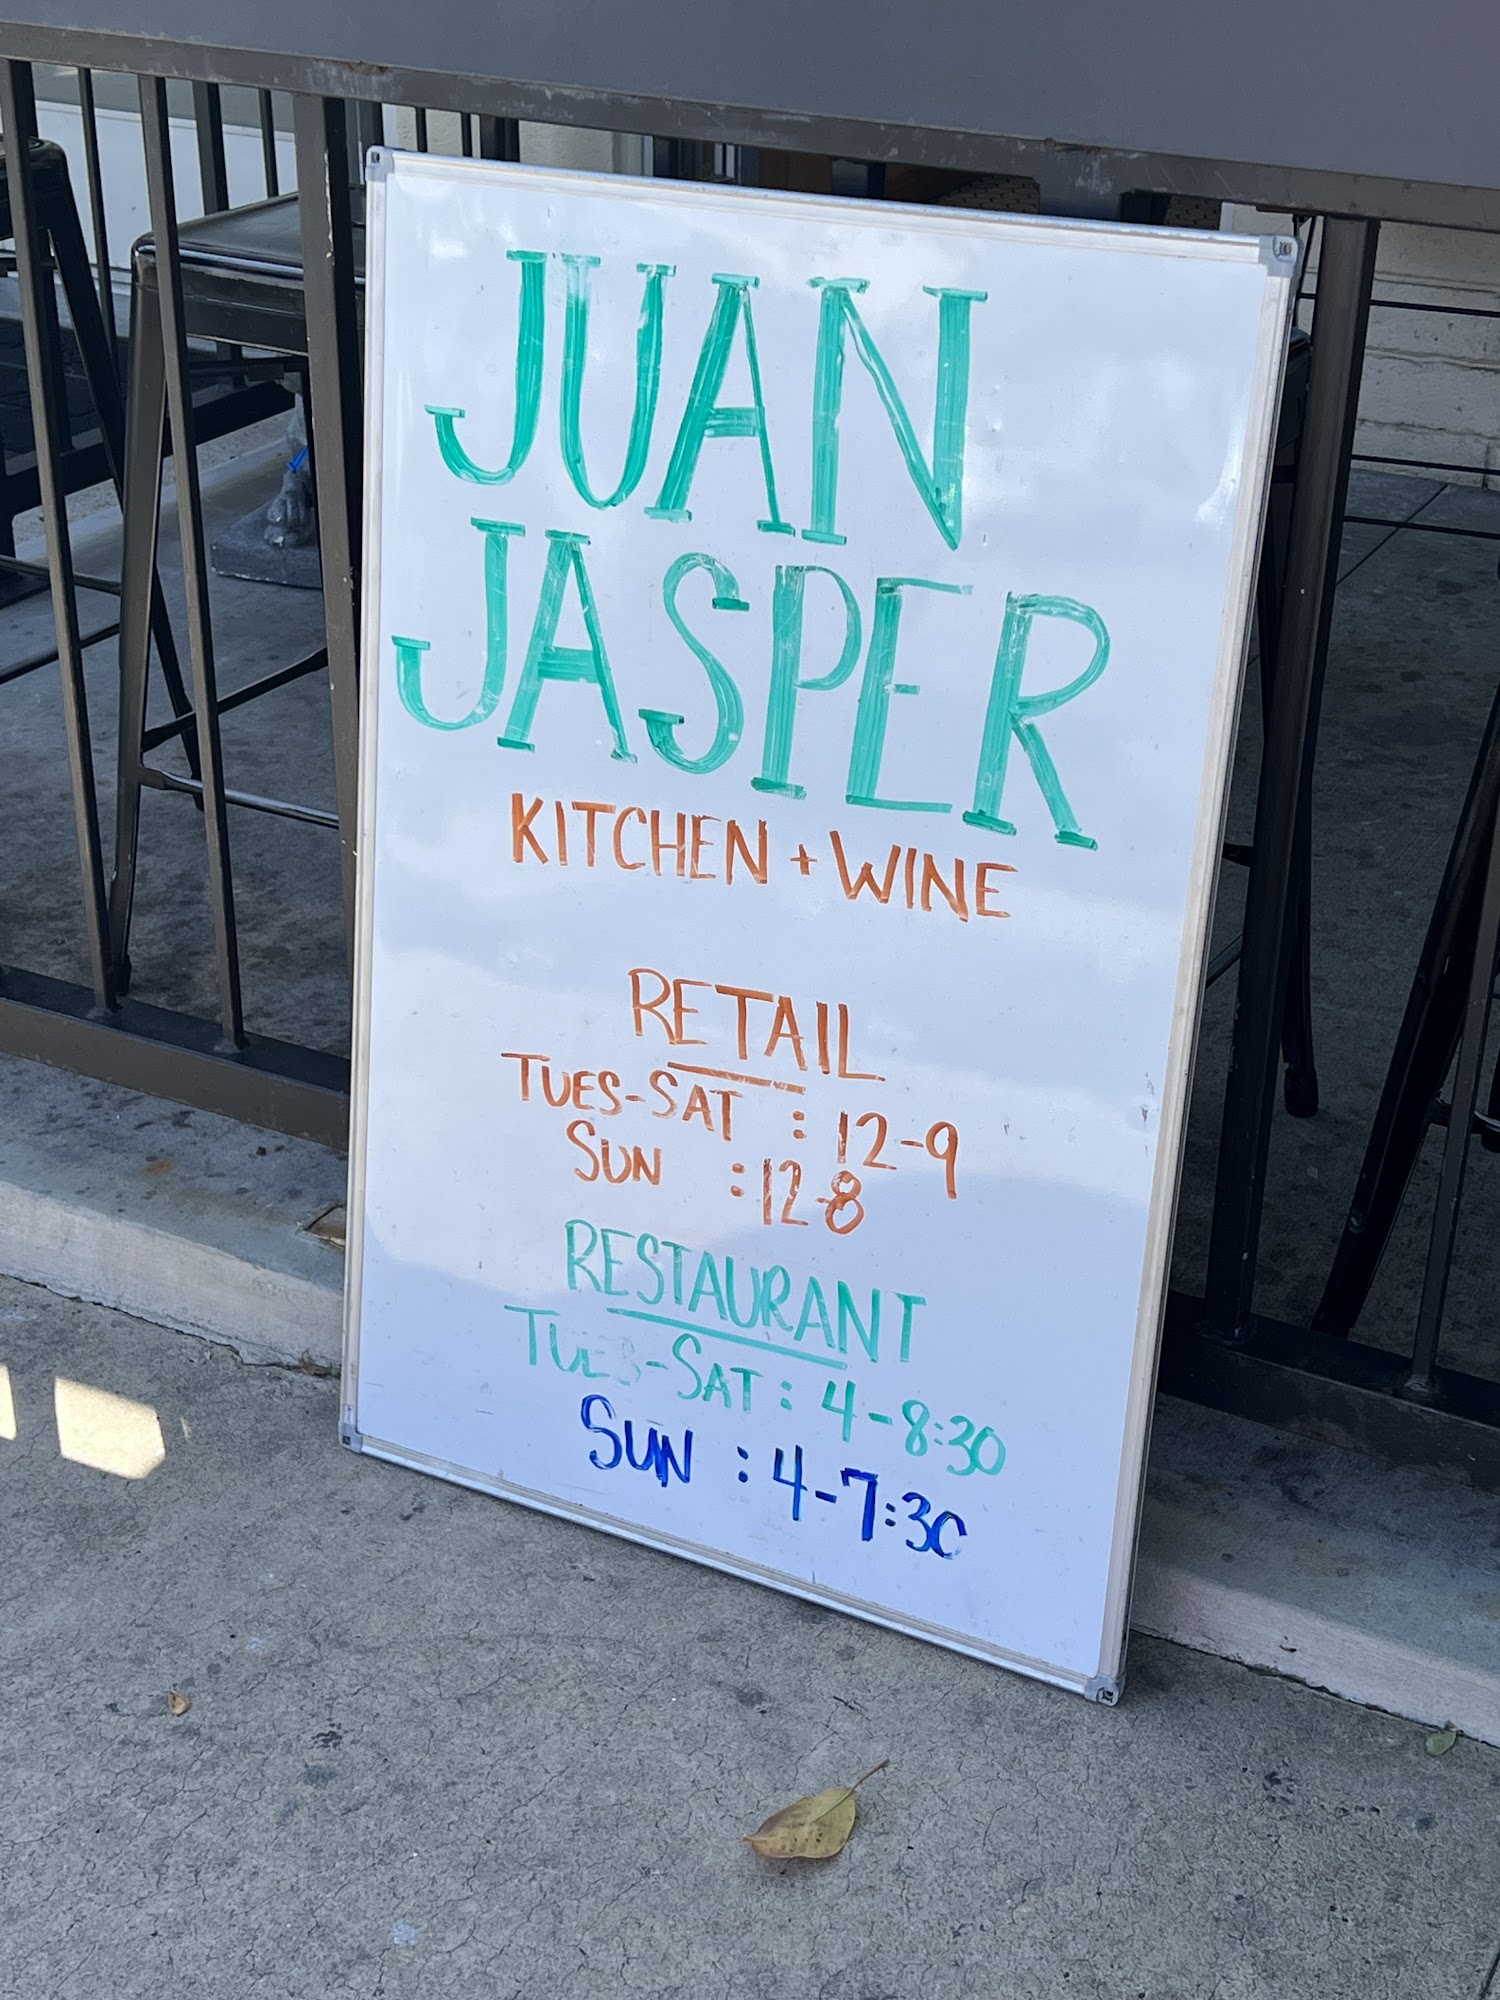 JUAN
JASPER
KITCHEN + WINE
RETAIL
TUES-SAT : 12-9
SUN : 12-8
RESTAURANT
TUES-SAT : 4-8:30
SUN : 4-7:30